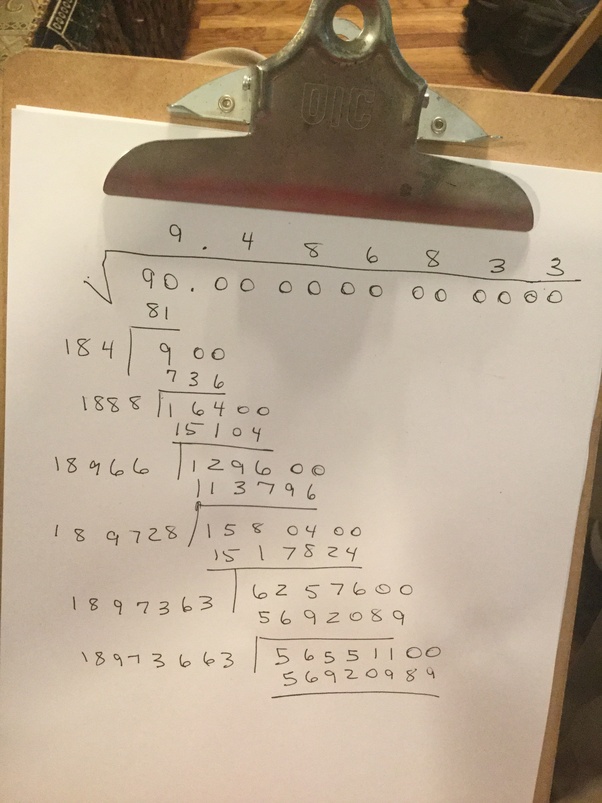 DIC
9 . 4 8 6 8 3 3
√90.00 00 00 00 00 00
81
184 | 9 00
7 3 6
1888 | 1 6 4 00
15 1 0 4
18966 | 1 2 9 6 00
1 1 3 7 9 6
189728 | 15 8 04 00
15 1 7 8 2 4
1897363 | 6 2 5 7 6 0 0
5 6 9 2 0 8 9
18973663 | 5 6 5 5 1 1 0 0
5 6 9 2 0 9 8 9